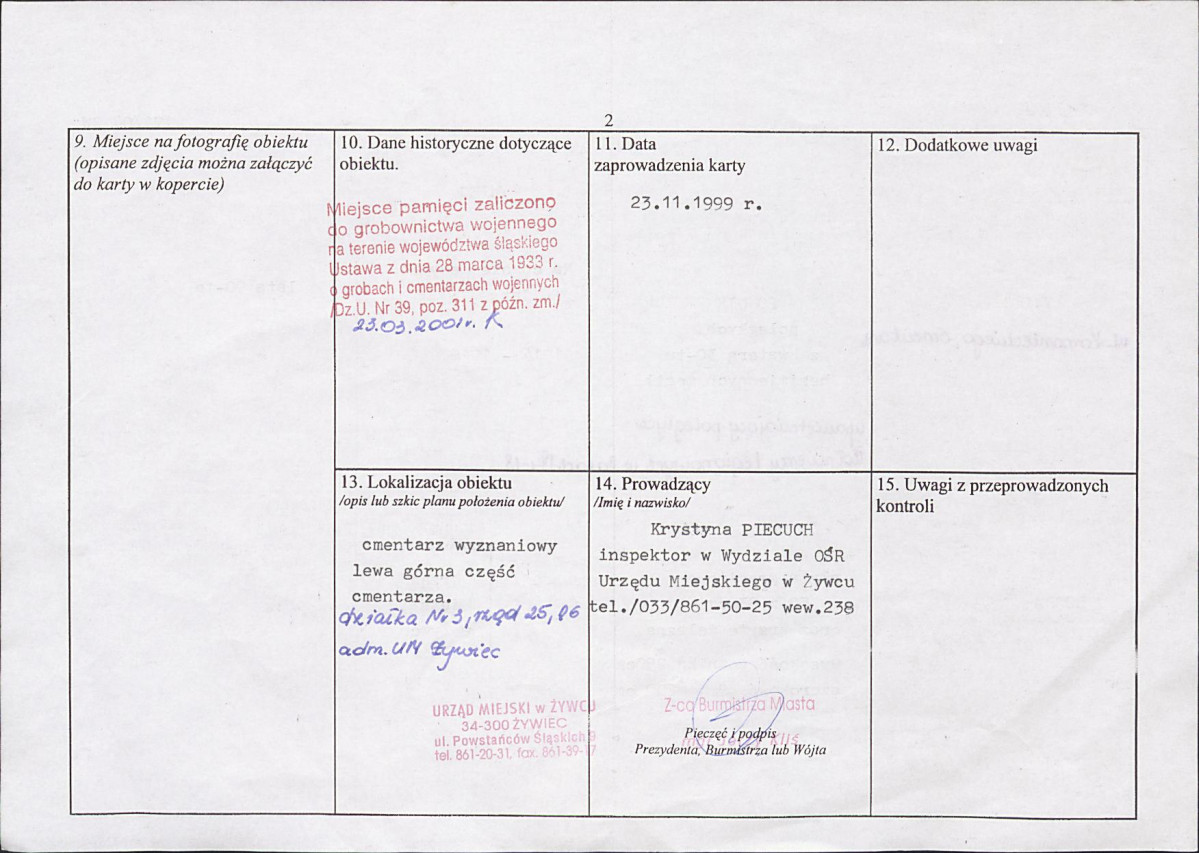 2
9. Miejsce na fotografię obiektu
(opisane zdjęcia można załączyć
do karty w kopercie)
10. Dane historyczne dotyczące
obiektu.
Miejsce pamięci zaliczono
do grobownictwa wojennego
na terenie województwa śląskiego
Ustawa z dnia 28 marca 1933 r.
o grobach i cmentarzach wojennych
/Dz.U. Nr 39, poz. 311 z późn. zm./
23.03.2001r.
11. Data
zaprowadzenia karty
23.11.1999 r.
12. Dodatkowe uwagi
13. Lokalizacja obiektu
/opis lub szkic planu położenia obiektu/
cmentarz wyznaniowy
lewa górna część
cmentarza.
działka Nr 3, rząd 25, 26
adm. UM Żywiec
URZĄD MIEJSKI w ŻYWCU
34-300 ŻYWIEC
ul. Powstańców Śląskich 9
tel. 861-20-31, fax. 861-39-17
14. Prowadzący
/Imię i nazwisko/
Krystyna PIECUCH
inspektor w Wydziale OŚR
Urzędu Miejskiego w Żywcu
tel./033/861-50-25 wew.238
Z-ca Burmistrza Miasta
Pieczęć i podpis
Prezydenta, Burmistrza lub Wójta
15. Uwagi z przeprowadzonych
kontroli